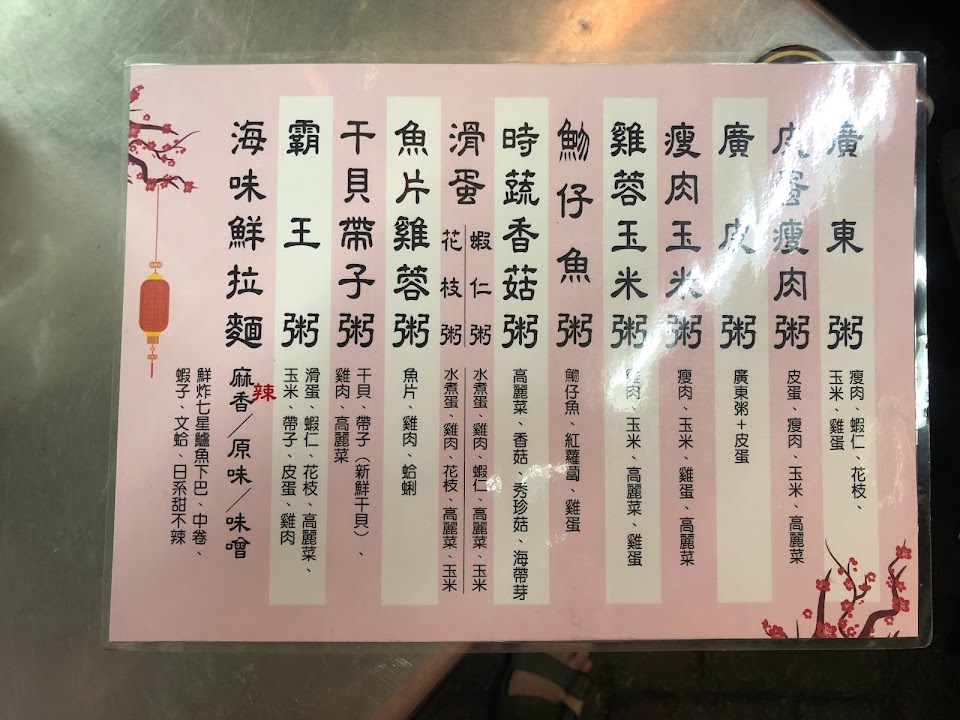 廣東粥
瘦肉、蝦仁、花枝、
玉米、雞蛋
皮蛋瘦肉粥
皮蛋、瘦肉、玉米、高麗菜
廣皮粥
廣東粥+皮蛋
瘦肉玉米粥
瘦肉、玉米、雞蛋、高麗菜
雞蓉玉米粥
雞肉、玉米、高麗菜、雞蛋
魩仔魚粥
魩仔魚、紅蘿蔔、雞蛋
時蔬香菇粥
高麗菜、香菇、秀珍菇、海帶芽
滑蛋
蝦仁粥
水煮蛋、雞肉、蝦仁、高麗菜、玉米
花枝粥
水煮蛋、雞肉、花枝、高麗菜、玉米
魚片雞蓉粥
魚片、雞肉、蛤蜊
干貝帶子粥
干貝、帶子(新鮮干貝)、
雞肉、高麗菜
霸王粥
滑蛋、蝦仁、花枝、高麗菜、
玉米、帶子、皮蛋、雞肉
海味鮮拉麵
麻香/原味/味噌
辣
鮮炸七星鱸魚下巴、中卷、
蝦子、文蛤、日系甜不辣